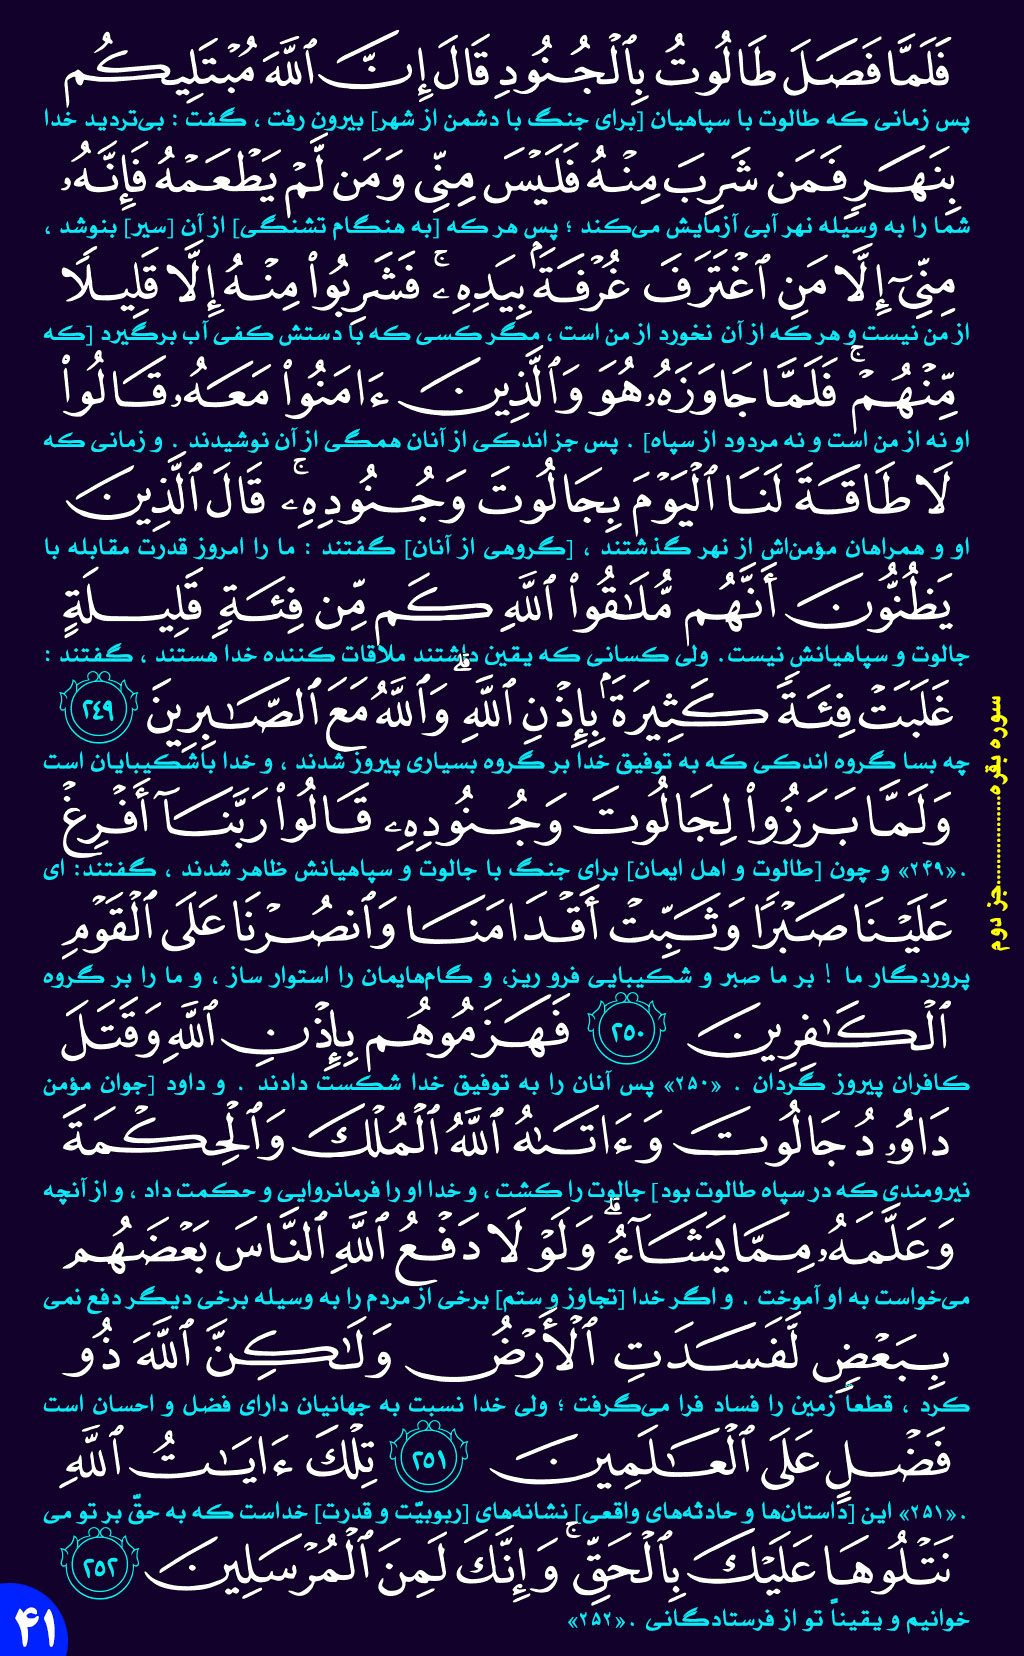 فَلَمَّا فَصَلَ طَالُوتُ بِٱلْجُنُودِ قَالَ إِنَّ ٱللَّهَ مُبْتَلِيكُم
پس زمانی که طالوت با سپاهیان [برای جنگ با دشمن از شهر] بیرون رفت ، گفت : بی‌تردید خدا
بِنَهَرٍ فَمَن شَرِبَ مِنْهُ فَلَيْسَ مِنِّى وَمَن لَّمْ يَطْعَمْهُ فَإِنَّهُۥ
شما را به وسیله نهر آبی آزمایش می‌کند ؛ پس هر که [به هنگام تشنگی] از آن [سیر] بنوشد ،
مِنِّىٓ إِلَّا مَنِ ٱغْتَرَفَ غُرْفَةًۢ بِيَدِهِۦ ۚ فَشَرِبُوا۟ مِنْهُ إِلَّا قَلِيلًا
از من نیست و هر که از آن نخورد از من است ، مگر کسی که با دستش کفی آب برگیرد [که
مِّنْهُمْ ۚ فَلَمَّا جَاوَزَهُۥ هُوَ وَٱلَّذِينَ ءَامَنُوا۟ مَعَهُۥ قَالُوا۟
او نه از من است و نه مردود از سپاه] . پس جز اندکی از آنان همگی از آن نوشیدند . و زمانی که
لَا طَاقَةَ لَنَا ٱلْيَوْمَ بِجَالُوتَ وَجُنُودِهِۦ ۚ قَالَ ٱلَّذِينَ
او و همراهان مؤمن‌اش از نهر گذشتند ، [گروهی از آنان] گفتند : ما را امروز قدرت مقابله با
يَظُنُّونَ أَنَّهُم مُّلَـٰقُوا۟ ٱللَّهِ كَم مِّن فِئَةٍ قَلِيلَةٍ
جالوت و سپاهیانش نیست. ولی کسانی که یقین داشتند ملاقات کننده خدا هستند ، گفتند :
غَلَبَتْ فِئَةً كَثِيرَةًۢ بِإِذْنِ ٱللَّهِ ۗ وَٱللَّهُ مَعَ ٱلصَّـٰبِرِينَ ٢٤٩
چه بسا گروه اندکی که به توفیق خدا بر گروه بسیاری پیروز شدند ، و خدا باشکیبایان است
وَلَمَّا بَرَزُوا۟ لِجَالُوتَ وَجُنُودِهِۦ قَالُوا۟ رَبَّنَآ أَفْرِغْ
.«۲۴۹» و چون [طالوت و اهل ایمان] برای جنگ با جالوت و سپاهیانش ظاهر شدند ، گفتند: ای
عَلَيْنَا صَبْرًا وَثَبِّتْ أَقْدَامَنَا وَٱنصُرْنَا عَلَى ٱلْقَوْمِ
پروردگار ما ! بر ما صبر و شکیبایی فرو ریز، و گام‌هایمان را استوار ساز ، و ما را بر گروه
ٱلْكَـٰفِرِينَ ٢٥٠ فَهَزَمُوهُم بِإِذْنِ ٱللَّهِ وَقَتَلَ
کافران پیروز گردان . «۲۵۰» پس آنان را به توفیق خدا شکست دادند . و داود [جوان مؤمن
دَاوُۥدُ جَالُوتَ وَءَاتَىٰهُ ٱللَّهُ ٱلْمُلْكَ وَٱلْحِكْمَةَ
نیرومندی که در سپاه طالوت بود] جالوت را کشت ، و خدا او را فرمانروایی و حکمت داد ، و از آنچه
وَعَلَّمَهُۥ مِمَّا يَشَآءُ ۗ وَلَوْلَا دَفْعُ ٱللَّهِ ٱلنَّاسَ بَعْضَهُم
می‌خواست به او آموخت . و اگر خدا [تجاوز و ستم] برخی از مردم را به وسیله برخی دیگر دفع نمی
بِبَعْضٍ لَّفَسَدَتِ ٱلْأَرْضُ وَلَـٰكِنَّ ٱللَّهَ ذُو
کرد ، قطعاً زمین را فساد فرا می‌گرفت ؛ ولی خدا نسبت به جهانیان دارای فضل و احسان است
فَضْلٍ عَلَى ٱلْعَـٰلَمِينَ ٢٥١ تِلْكَ ءَايَـٰتُ ٱللَّهِ
.«۲۵۱» این [داستان‌ها و حادثه‌های واقعی] نشانه‌های [ربوبیّت و قدرت] خداست که به حقّ بر تو می
نَتْلُوهَا عَلَيْكَ بِٱلْحَقِّ ۚ وَإِنَّكَ لَمِنَ ٱلْمُرْسَلِينَ ٢٥٢
خوانیم و یقیناً تو از فرستادگانی .«۲۵۲»
سوره بقره................جز دوم
۴۱